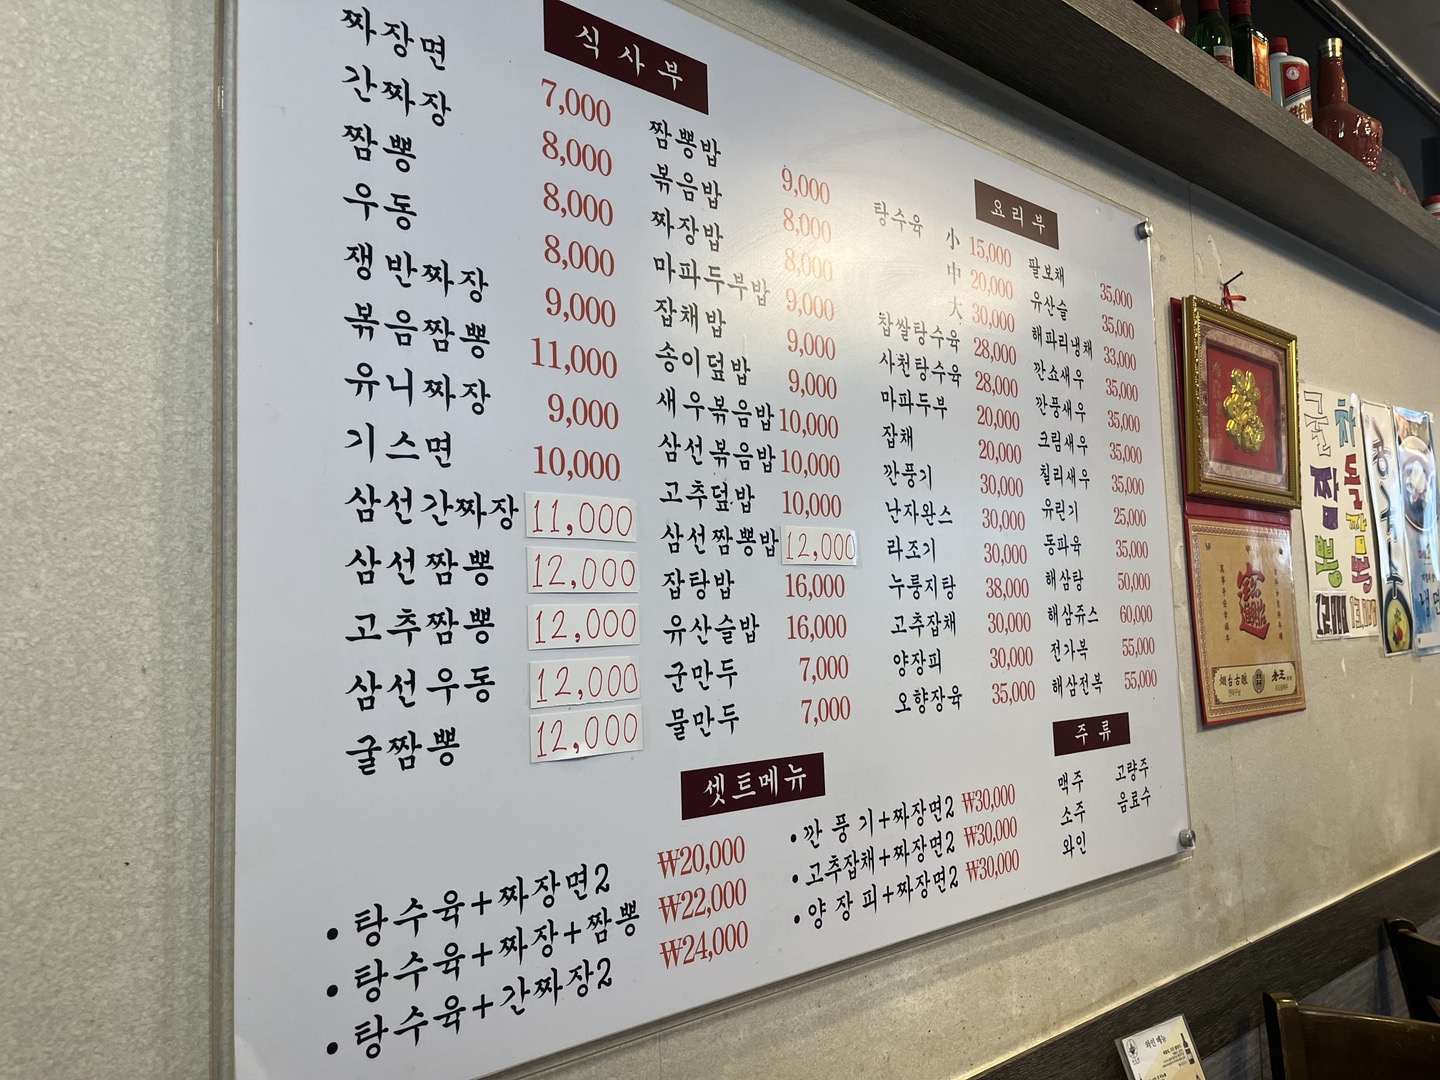 식사부
짜장면 7,000
간짜장 8,000
짬뽕 8,000
우동 8,000
쟁반짜장 9,000
볶음짬뽕 11,000
유니짜장 9,000
기스면 10,000
삼선간짜장 11,000
삼선짬뽕 12,000
고추짬뽕 12,000
삼선우동 12,000
굴짬뽕 12,000
짬뽕밥 9,000
볶음밥 8,000
짜장밥 8,000
마파두부밥 9,000
잡채밥 9,000
송이덮밥 9,000
새우볶음밥 10,000
삼선볶음밥 10,000
고추덮밥 10,000
삼선짬뽕밥 12,000
잡탕밥 16,000
유산슬밥 16,000
군만두 7,000
물만두 7,000
요리부
탕수육 小 15,000
中 20,000
大 30,000
찹쌀탕수육 28,000
사천탕수육 28,000
마파두부 20,000
잡채 20,000
깐풍기 30,000
난자완스 30,000
라조기 30,000
누룽지탕 38,000
고추잡채 30,000
양장피 30,000
오향장육 35,000
팔보채 35,000
유산슬 35,000
해파리냉채 33,000
깐쇼새우 35,000
깐풍새우 35,000
크림새우 35,000
칠리새우 35,000
유린기 25,000
동파육 35,000
해삼탕 50,000
해삼쥬스 60,000
전가복 55,000
해삼전복 55,000
셋트메뉴
• 탕수육+짜장면2 ₩20,000
• 탕수육+짜장+짬뽕 ₩22,000
• 탕수육+간짜장2 ₩24,000
• 깐풍기+짜장면2 ₩30,000
• 고추잡채+짜장면2 ₩30,000
• 양장피+짜장면2 ₩30,000
주류
맥주 고량주
소주 음료수
와인
굴짬뽕
차돌짬뽕
烟台古酿
老王
와인 메뉴